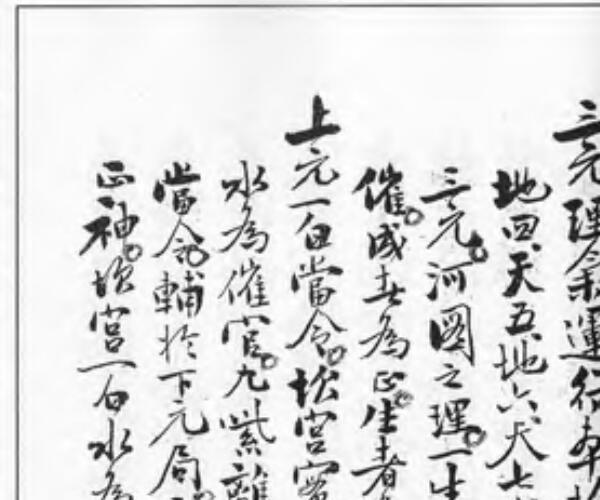 三元理氣運行本
地四天五地六天七
三元河圖之理一生
催成者為正生者
上元一白當令坎宮
水為催官九紫離
當令輔於下元局
正神坎宮一白水為